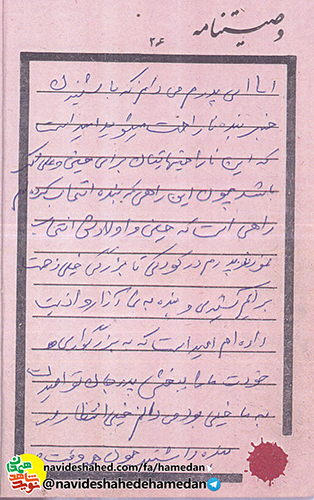 وصیتنامه
۲۶
اما ای پدرم می دانم که با شنیدن
خبر بنده ناراحت میشوید امید است
که این ناراحتیهایتان برای حینی و علی اکبر
باشد چون این راهی که بنده انتخاب کرده ام
راهی است که حینی و اولادش انتخاب
نمودند پدرم در کودکی تا بزرگی خیلی زحمت
برایم کشیدی و بنده به شما آزار و اذیت
داده ام امید است که به بزرگواری
خودت ما را ببخشی پدر جان تو امیدت
به ما خیلی بود می دانم خیلی انتظار در
بنده را
navideshahed.com/fa/hamedan
@navideshahedehamedan